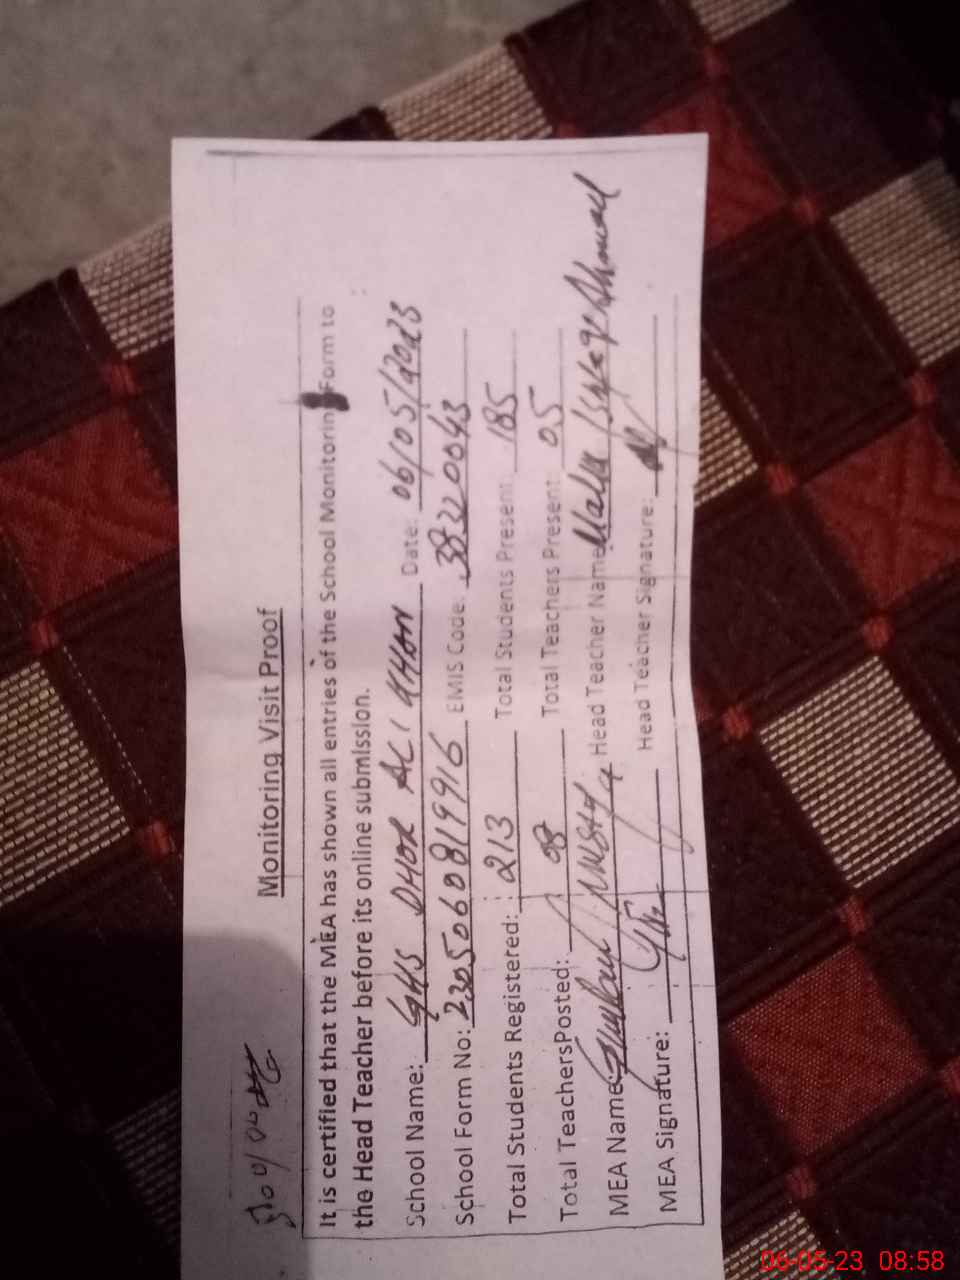 Monitoring Visit Proof
It is certified that the MEA has shown all entries of the School Monitoring Form to
the Head Teacher before its online submission.
School Name: GHS DHOK ALI KHAN Date: 06/05/2023
School Form No: 2305060819916 EMIS Code: 38320043
Total Students Registered: 213 Total Students Present: 185
Total TeachersPosted: 08 Total Teachers Present: 05
MEA Name: Ghulam Mustafa Head Teacher Name: Malik Ahmed
MEA Signature: Head Teacher Signature:
06-05-23 08:58